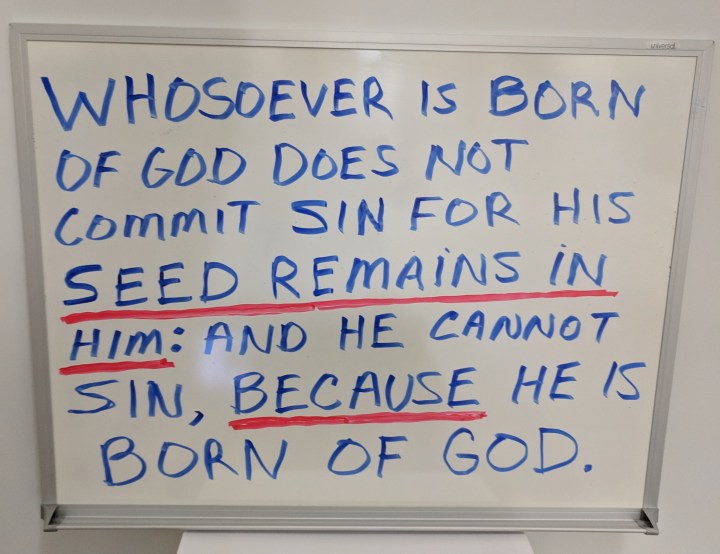 universal
WHOSOEVER IS BORN
OF GOD DOES NOT
COMMIT SIN FOR HIS
SEED REMAINS IN
HIM: AND HE CANNOT
SIN, BECAUSE HE IS
BORN OF GOD.